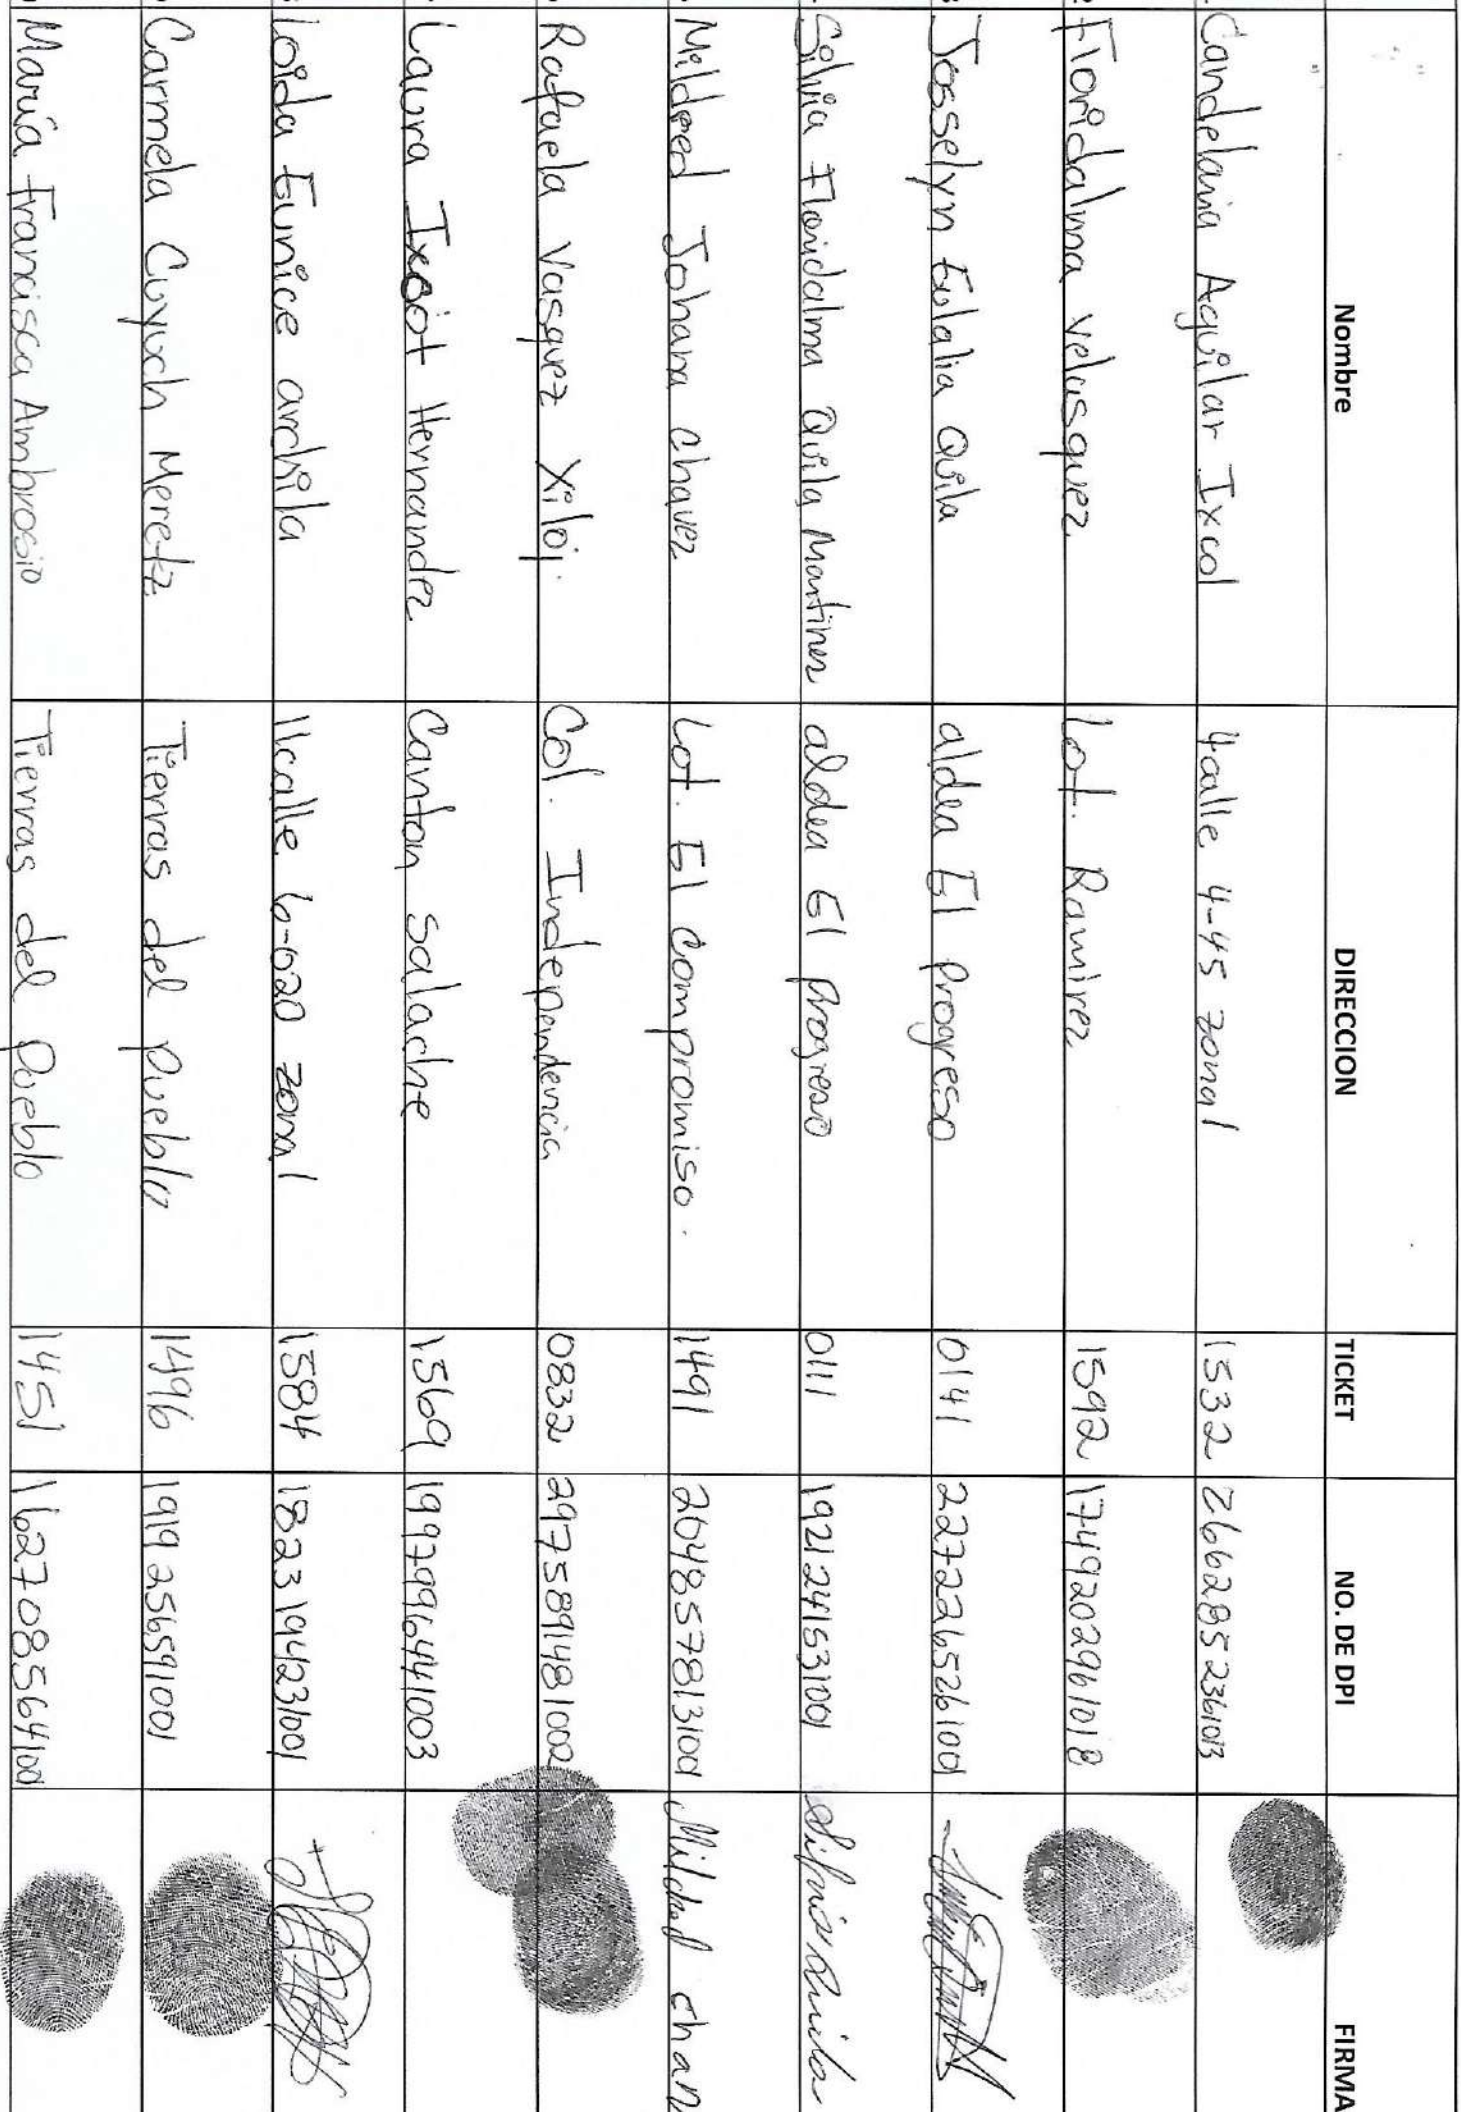 Nombre DIRECCION TICKET NO. DE DPI FIRMA
Candelaria Aguilar Ixcol 4calle 4-45 zona1 1532 2662852361013
Floridalma Velasquez Lot. Ramirez 1592 1749202961018
Josselyn Eulalia Quila aldea El Progreso 0141 2272265261001
Silvia Floridalma Quila Martinez aldea El Progreso 0111 1921241531001 Silvia Quila
Mildred Johana Chavez Lot. El Compromiso. 1491 2648578131001 Mildred chan
Rafaela Vasquez Xiloj. Col. Independencia 0832 2975891481002
Laura Ixcot Hernandez Canton Salache 1569 1997996441003
Loida Eunice archila 11calle 6-020 zona1 1584 1823194231001
Carmela Cuyuch Meretz Tierras del pueblo 1496 1919256591001
María Francisca Ambrosio Tierras del Pueblo 1451 1627085641001